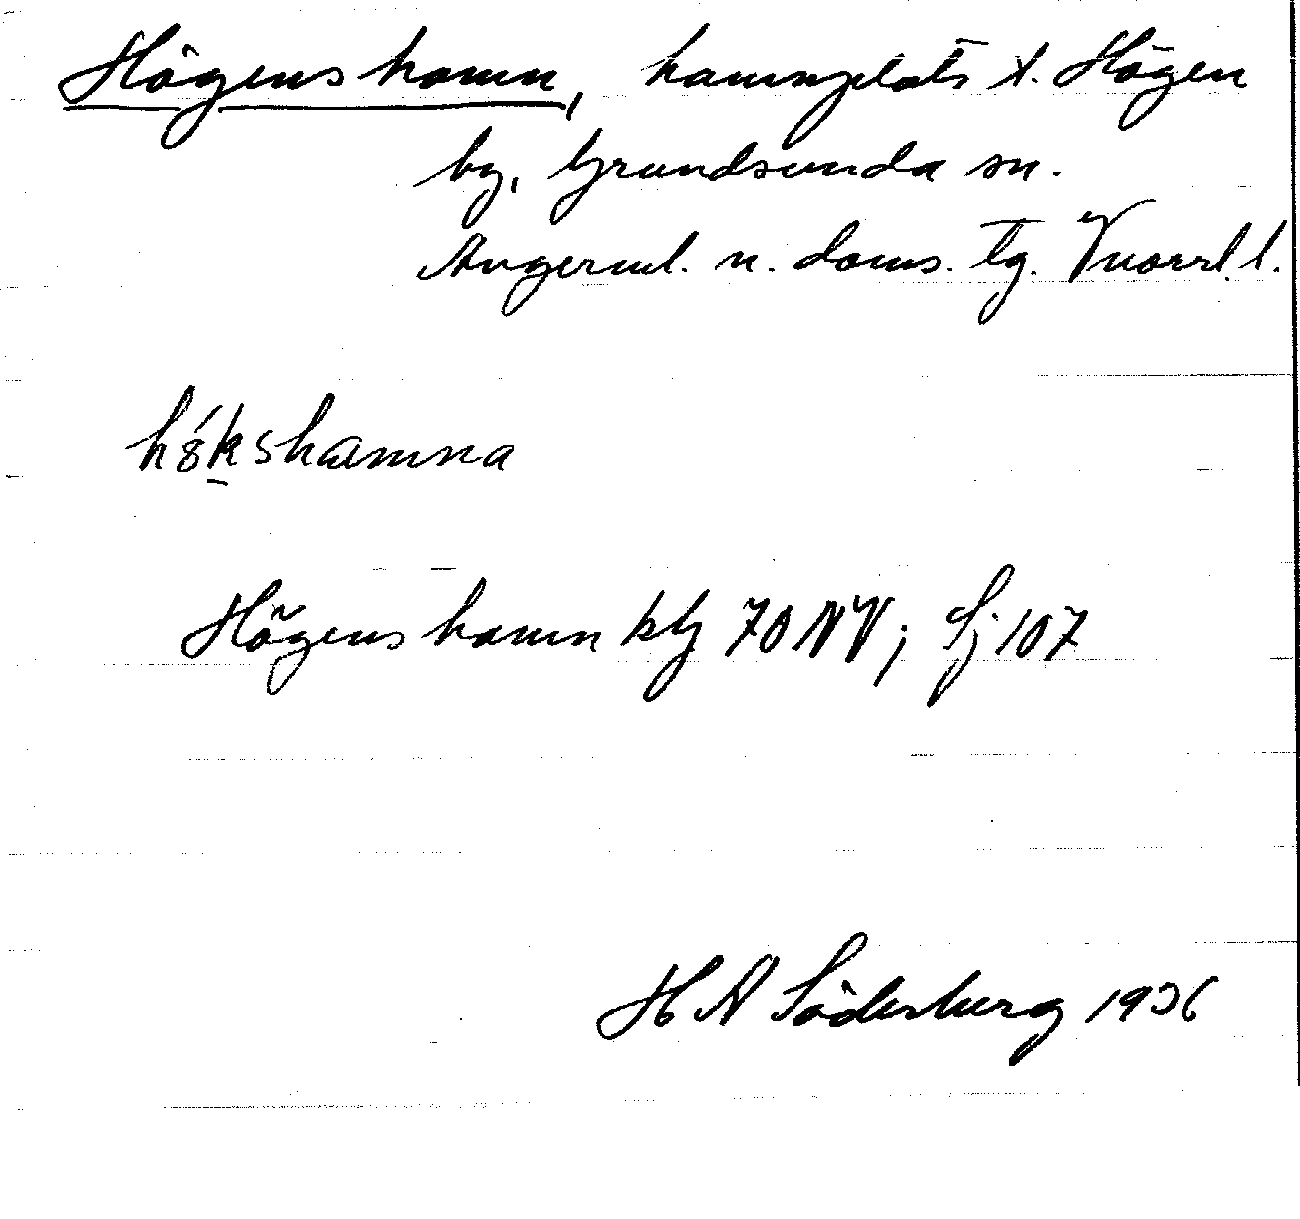 Högenshamn, hamnplats t. Högen
by, Grundsunda sn.
Ångerml. n. doms. tg. Vnorrl. l.
hökshamna
Högenshamn ktg 70 NV; Sj 107
H A Söderberg 1936